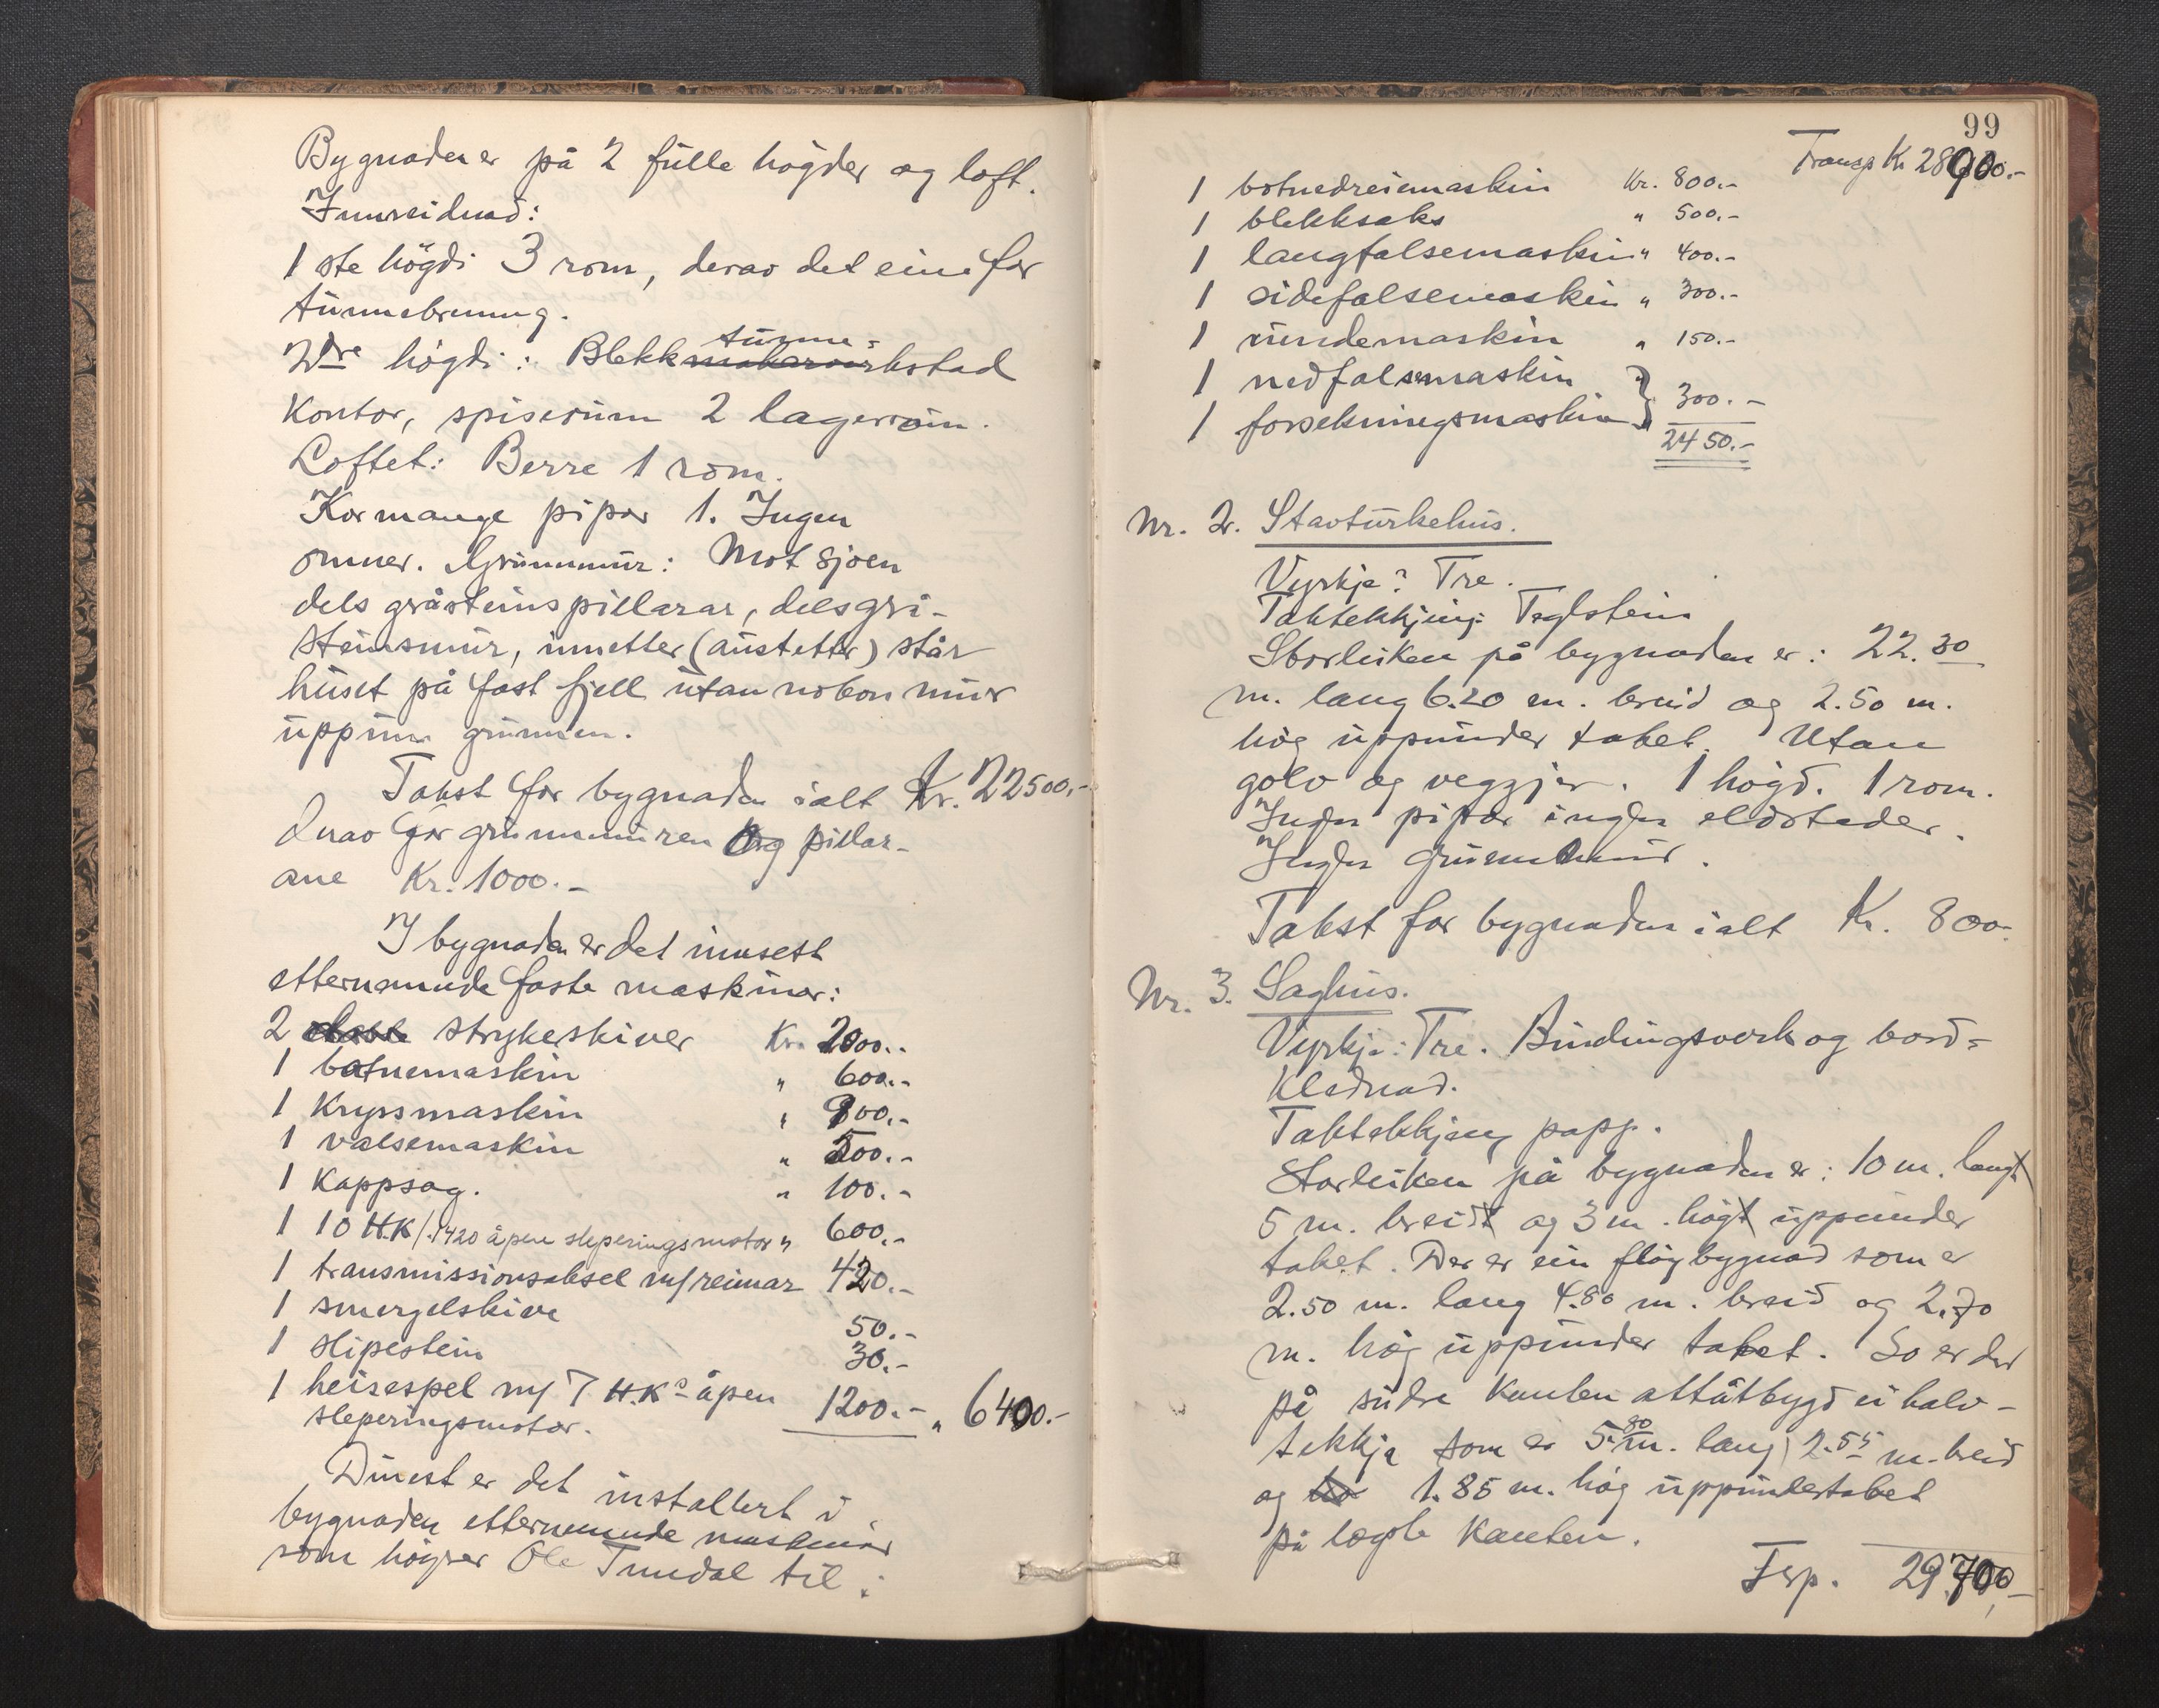 Bygnaden er på 2 fulle högder og loft.
Innreidnad:
1ste högdi 3 rom, derav det eine for
tunnebrenning.
2dre högdi: Blekktunne-makarverkstad
Kontor, spiserum 2 lagerrom.
Loftet: Berre 1 rom.
Kor mange pipor 1. Ingen
omner. Grunnmur: Mot sjöen
dels gråsteinspillarar, dels grå-
steinsmur, innetter (austetter) står
huset på fast fjell utan nokon mur
uppunn grunnen.
Takst for bygnaden ialt Kr. 22500.-
derav for grunnmuren og pillar-
ane Kr. 1000.-
I bygnaden er det innsett
etternemnde faste maskiner:
2 strykeskiver Kr. 2000.-
1 botnemaskin " 600.-
1 Kryssmaskin " 900.-
1 valsemaskin " 500.-
1 Kappsag. " 100.-
1 10 H.K/.1420 åpen sleperingsmotor " 600.-
1 transmissionsaksel m/reimar 420.-
1 smergelskive 50.-
1 slipestein 30.-
1 heisespel m/ 7 H.K's åpen 1200.- " 6400.-
sleperingsmotor.
Dinest er det installert i
bygnaden etternemnde maskinar
som höyrer Ole Tundal til:
99
Transp Kr 28900.-
1 botnedreiemaskin Kr. 800.-
1 blekksaks " 500.-
1 langfalsemaskin " 400.-
1 sidefalsemaskin " 300.-
1 rundemaskin " 150.-
1 nedfalsemaskin }
1 forsekningsmaskin } " 300.-
2450.-
Nr. 2. Stavturkehus.
Vyrkje: Tre.
Taktekkjing: Teglstein
Storleiken på bygnaden er: 22.30
m. lang 6.20 m. breid og 2.50 m.
hög uppunder taket. Utan
golv og veggjer. 1 högd. 1 rom.
Ingen pipor ingen eldstader.
Ingen grunnmur.
Takst for bygnaden ialt Kr. 800.-
Nr. 3. Saghus.
Vyrkje: Tre. Bindingsverk og bord-
klednad.
Taktekkjing papp.
Storleiken på bygnaden er: 10 m. langt
5 m. breidt og 3 m. högt uppunder
taket. Der er ein flöybygnad som er
2.50 m. lang 4.80 m. breid og 2.70
m. hög uppunder taket. So er det
på sudre kanten attåtbygd ei halv-
tekkje som er 5.80 m. lang, 2.55 m. breid
og 1.85 m. hög uppunder taket
på lægste kanten.
Tsp. 29.700,-